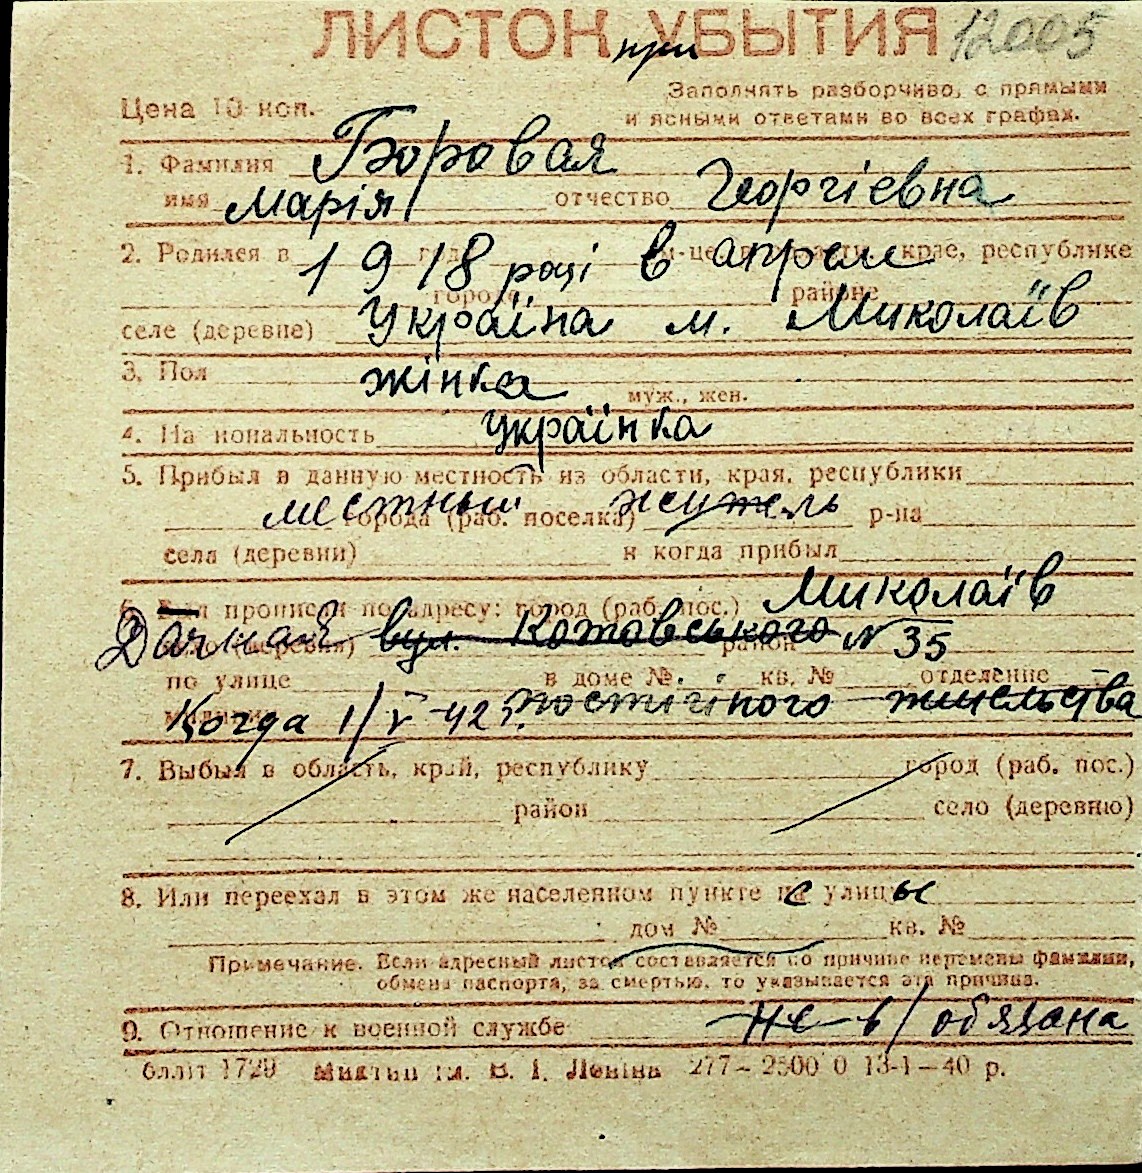 ЛИСТОК УБЫТИЯ 12005
при
Цена 10 коп.
Заполнять разборчиво, с прямыми
и ясными ответами во всех графах.
1. Фамилия Боровая
имя Марія отчество Георгіевна
2. Родился в 1918 році в апреле м-це, в области, крае, республике
городе районе
селе (деревне) Україна м. Миколаїв
3. Пол жінка муж., жен.
4. На иональность українка
5. Прибыл в данную местность из области, края, республики
местный житель
города (раб. поселка) р-на
села (деревни) и когда прибыл
6. Был прописан по адресу: город (раб. пос.) Миколаїв
Дачная вул. Котовського № 35
район
по улице в доме № кв. № отделение
милиции Когда 1/V-42 г. постійного жительства
7. Выбыл в область, край, республику город (раб. пос.)
район село (деревню)
8. Или переехал в этом же населенном пункте с улицы
дом № кв. №
Примечание. Если адресный листок составляется по причине перемены фамилии,
обмена паспорта, за смертью, то указывается эта причина.
9. Отношение к военной службе не в/обязана
бліліт 1729 Миктип ім. В. І. Леніна 277–2500 0 13-1–40 р.